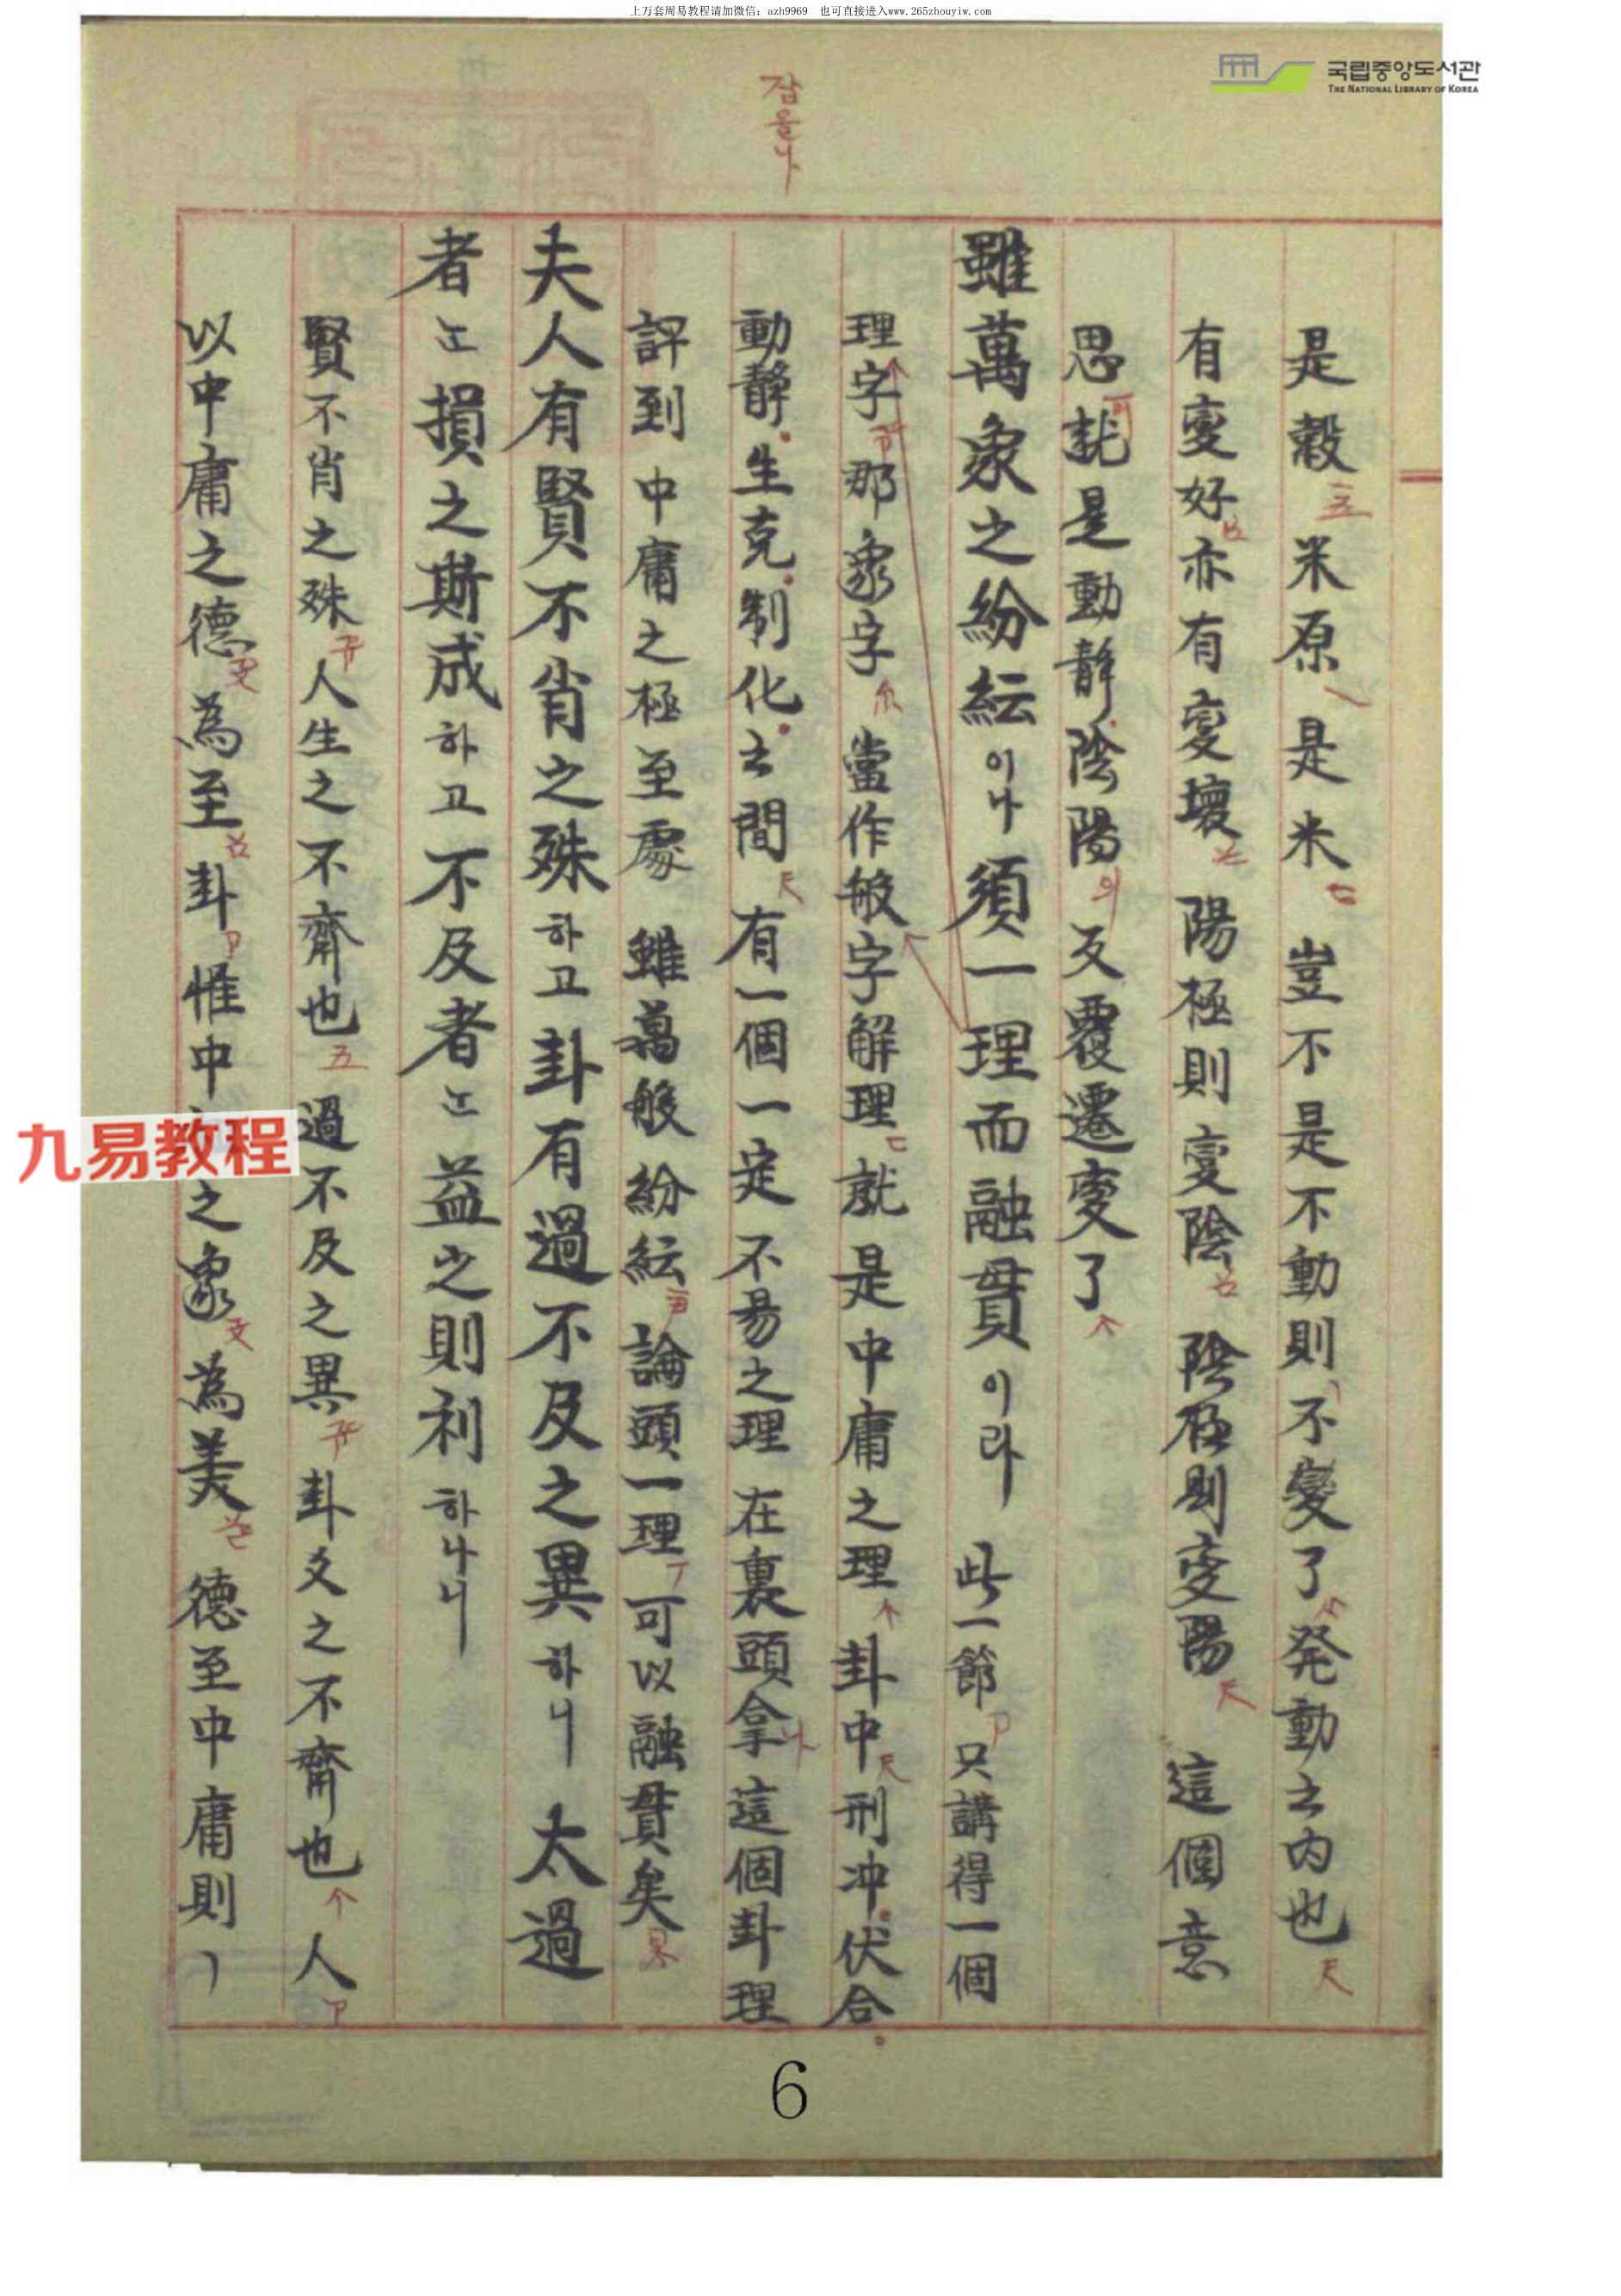 上万套周易教程请加微信：azh9969 也可直接进入www.265zhouyiw.com
국립중앙도서관
THE NATIONAL LIBRARY OF KOREA
잡을나
是穀米原是米豈不是不動則不變了発動之内也
有变好亦有变壞陽極則变陰陰極則变陽這個意
思就是動静陰陽反覆遷变了
雖萬象之紛紜이나須一理而融貫이라此一節只講得一個
理字那象字當作般字解理就是中庸之理卦中刑冲伏合
動静生克制化之間有一個一定不易之理在裏頭拿這個卦理
評到中庸之極至處雖萬般紛紜論頭一理可以融貫矣
夫人有賢不肖之殊하고卦有過不及之異하니太過
者損之斯成하고不及者益之則利하나니
賢不肖之殊人生之不齊也過不及之異卦爻之不齊也人
以中庸之德為至卦惟中之象為美德至中庸則
九易教程
6